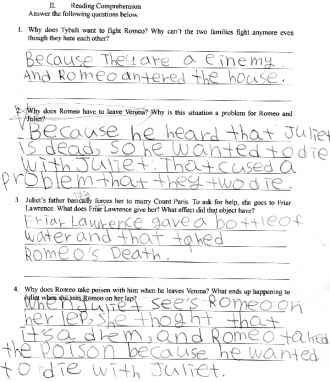 II. Reading Comprehension
Answer the following questions below.
1. Why does Tybalt want to fight Romeo? Why can't the two families fight anymore even
though they hate each other?
Because The! are a Einemy
And Romeo antered the house.
2. Why does Romeo have to leave Verona? Why is this situation a problem for Romeo and
Juliet?
Because he heard that Juliet
is dead, so he wanted to die
with Juliet. That cused a
problem that they two die.
3. Juliet's father basically forces her to marry Count Paris. To ask for help, she goes to Friar
Lawrence. What does Friar Lawrence give her? What effect did that object have?
Friar Lawrence gave a bottle of
water and that taked
Romeo's Death.
4. Why does Romeo take poison with him when he leaves Verona? What ends up happening to
Juliet when she sees Romeo on her lap?
When Juliet see's Romeo on
her lep, she thoght that
it's a drem, and Romeo taked
the poison because he wanted
to die with Juliet.